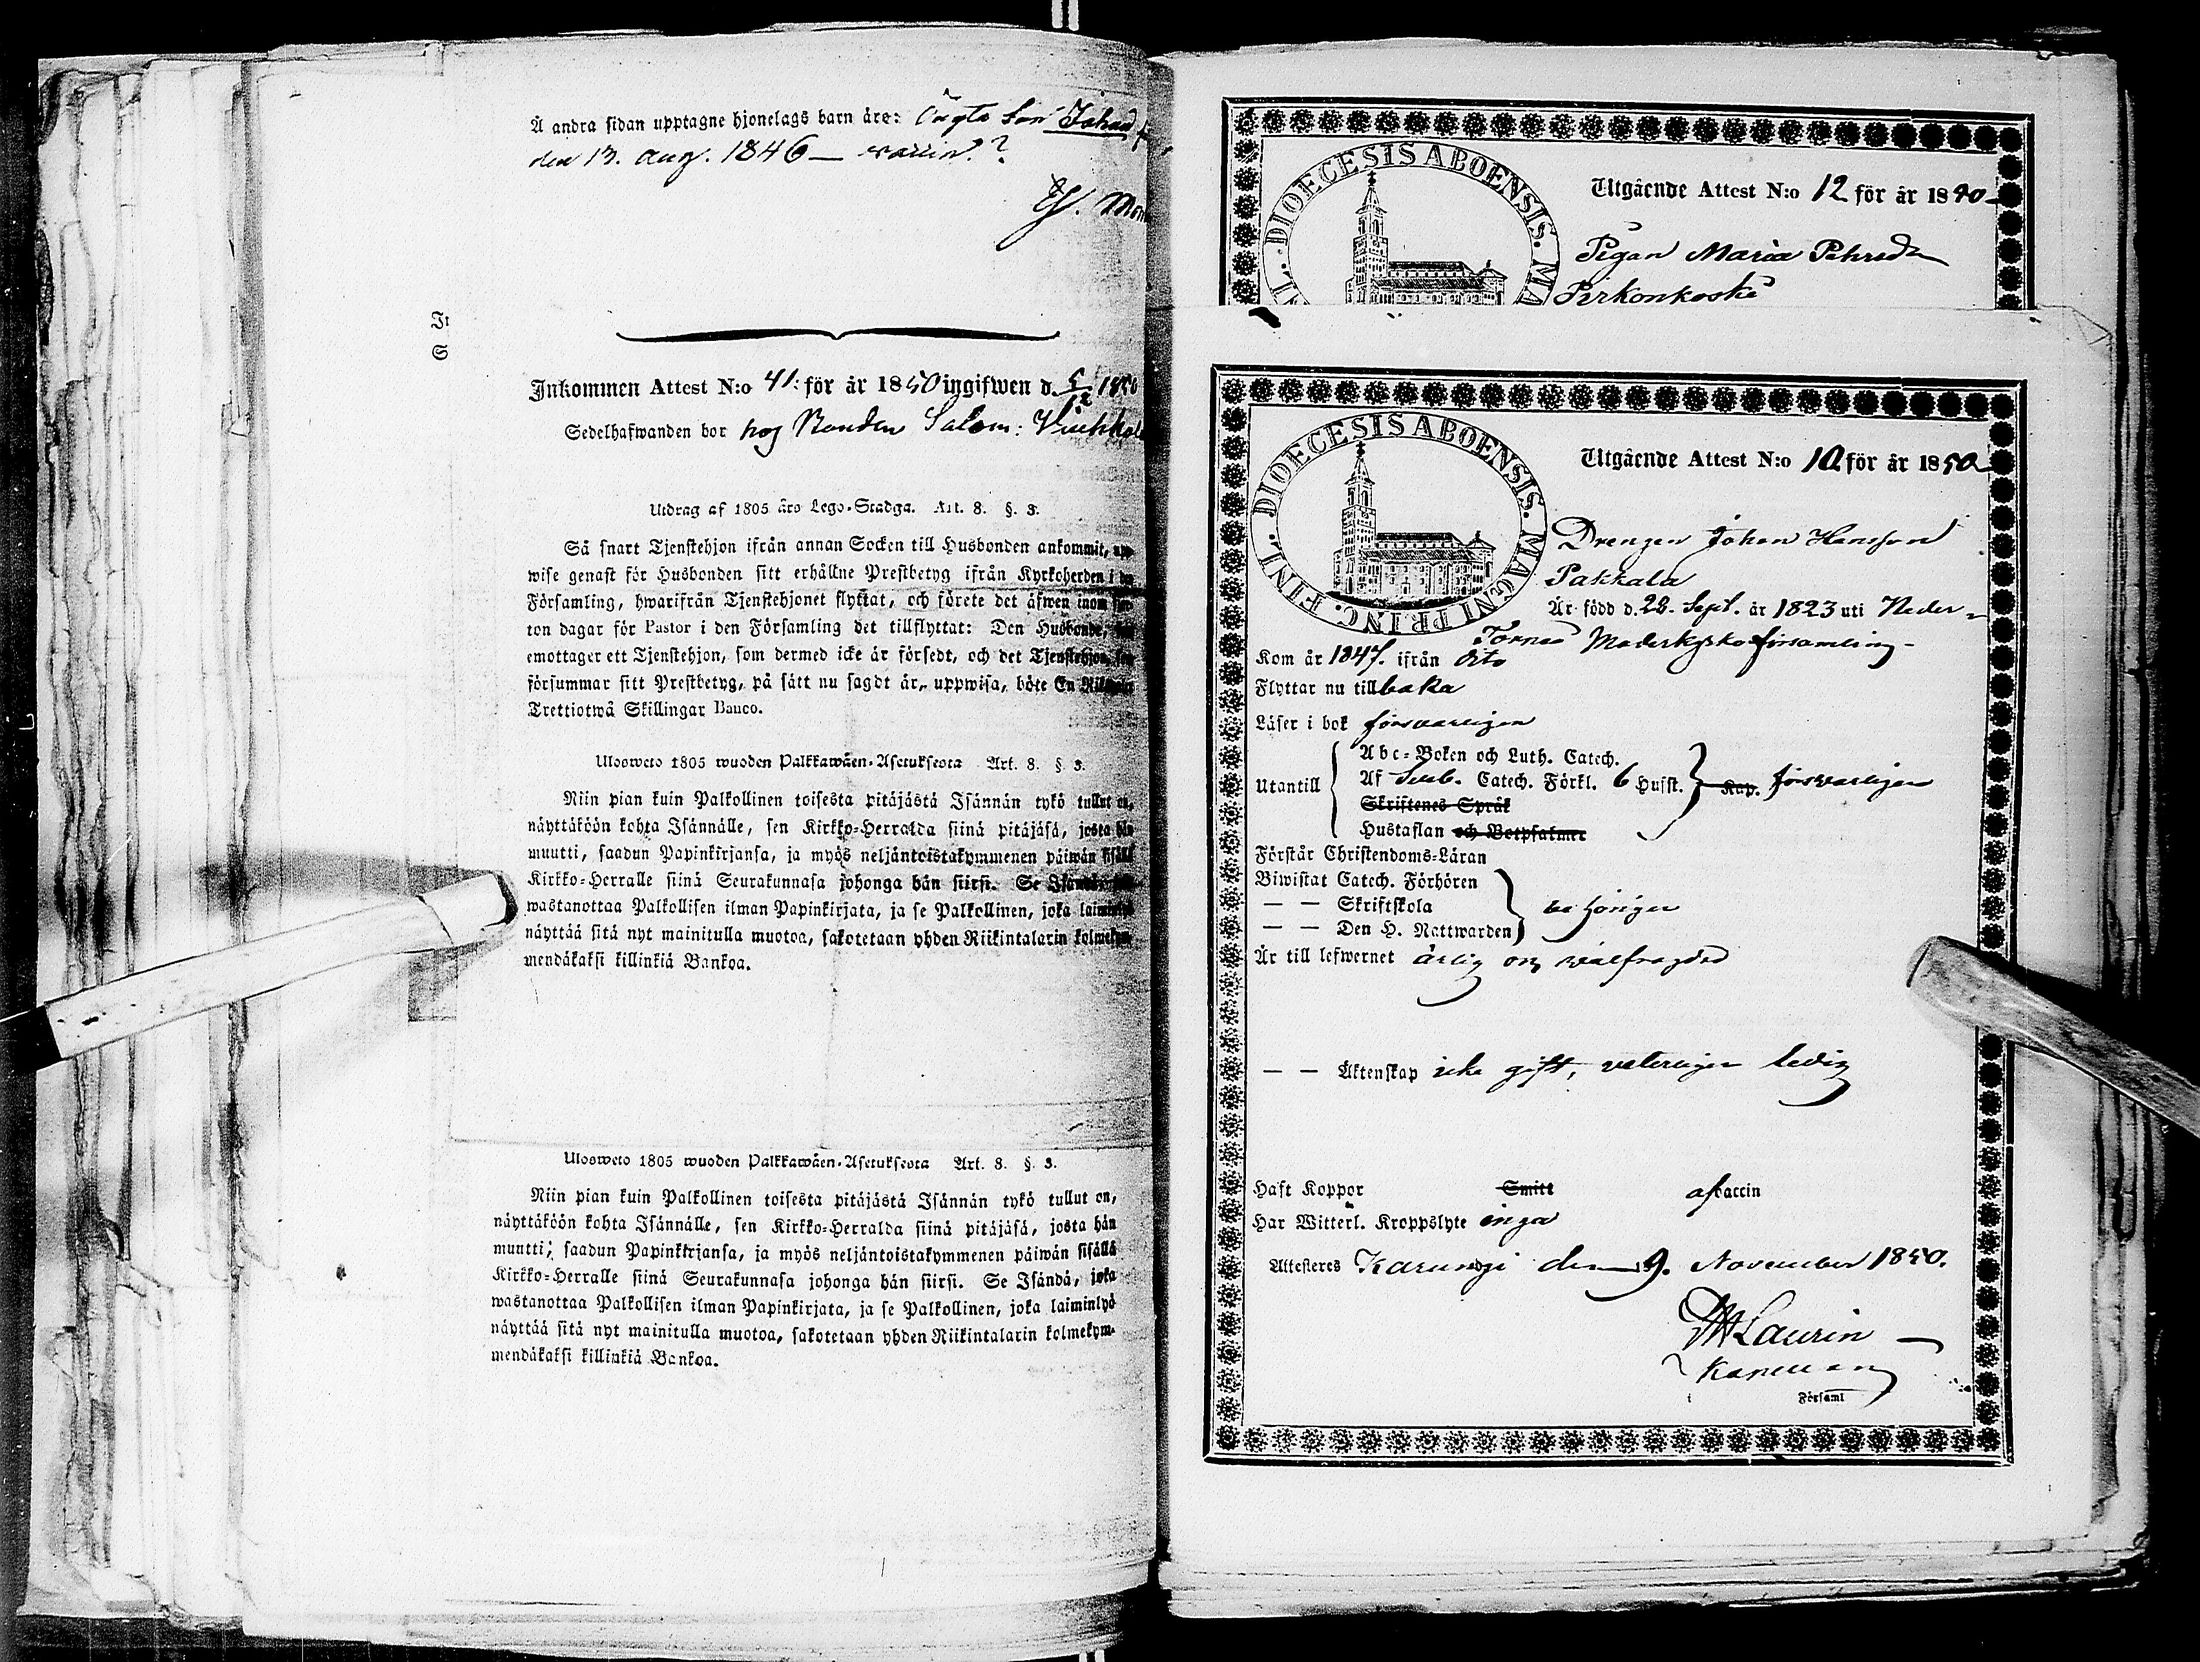 Å andra sidan upptagne hjonelags barn äro: Oägta Son Johan
den 13. Aug. 1846 — vaccin.?
In
S
Inkommen Attest N:o 41: för år 1850 ingifwen d. 5/12 1850
Sedelhafwanden bor hos Bonden Salom:
Utdrag af 1805 års Lego-Stadga. Art. 8. §. 3.
Så snart Tjenstehjon ifrån annan Socken till Husbonden ankommit, upp-
wise genast för Husbonden sitt erhållne Prestbetyg ifrån Kyrkoherden i den
Församling, hwarifrån Tjenstehjonet flyttat, och förete det äfwen inom fjor-
ton dagar för Pastor i den Församling det tillflyttat: Den Husbonde, som
emottager ett Tjenstehjon, som dermed icke är försedt, och det Tjenstehjon, som
försummar sitt Prestbetyg, på sätt nu sagdt är, uppwisa, böte En Riksdaler
Trettiotwå Skillingar Banco.
Ulosweto 1805 wuoden Palkkawäen-Asetuksesta Art. 8. §. 3.
Niin pian kuin Palkollinen toisesta pitäjästä Isännän tykö tullut on,
näyttäköön kohta Isännälle, sen Kirkko-Herralda siinä pitäjäsä, josta hän
muutti, saadun Papinkirjansa, ja myös neljäntoistakymmenen päiwän sisällä
Kirkko-Herralle siinä Seurakunnasa johonga hän siirsi. Se Isändä, joka
wastanottaa Palkollisen ilman Papinkirjata, ja se Palkollinen, joka laiminlyö
näyttää sitä nyt mainitulla muotoa, sakotetaan yhden Riikintalarin kolmekym-
mendäkaksi killinkiä Bankoa.
Ulosweto 1805 wuoden Palkkawäen-Asetuksesta Art. 8. §. 3.
Niin pian kuin Palkollinen toisesta pitäjästä Isännän tykö tullut on,
näyttäköön kohta Isännälle, sen Kirkko-Herralda siinä pitäjäsä, josta hän
muutti, saadun Papinkirjansa, ja myös neljäntoistakymmenen päiwän sisällä
Kirkko-Herralle siinä Seurakunnasa johonga hän siirsi. Se Isändä, joka
wastanottaa Palkollisen ilman Papinkirjata, ja se Palkollinen, joka laiminlyö
näyttää sitä nyt mainitulla muotoa, sakotetaan yhden Riikintalarin kolmekym-
mendäkaksi killinkiä Bankoa.
DIOECESIS ABOENSIS. MA
Utgående Attest N:o 12 för år 1850
Pigan Maria Pehrsd:r
Perkonkoski
DIOECESIS ABOENSIS. MAGNI PRINC. FINL.
Utgående Attest N:o 10 för år 1850
Drengen Johan Hansson
Pakkala
Är född d. 28. Sept. år 1823 uti Neder-
Torneå Moderkyrkoförsamling
Kom år 1847. ifrån dito
Flyttar nu tillbaka
Läser i bok försvarligen
Utantill Abc-Boken och Luth. Catech.
Af Sveb. Catech. Förkl. 6 Hufst. Kap. försvarligen
Skriftenes Språk
Hustaflan och Botpsalmer
Förstår Christendoms-Läran
Biwistat Catech. Förhören
— — Skriftskola behörigen
— — Den H. Nattwarden
Är till lefwernet ärlig och wälfrägdad
— — Äktenskap icke gift, veterligen ledig
Haft Koppor Smitt af Vaccin
Har Witterl. Kroppslyte inga
Attesteres Karungi den 9. November 1850.
Laurin
Kapellan
i Församl